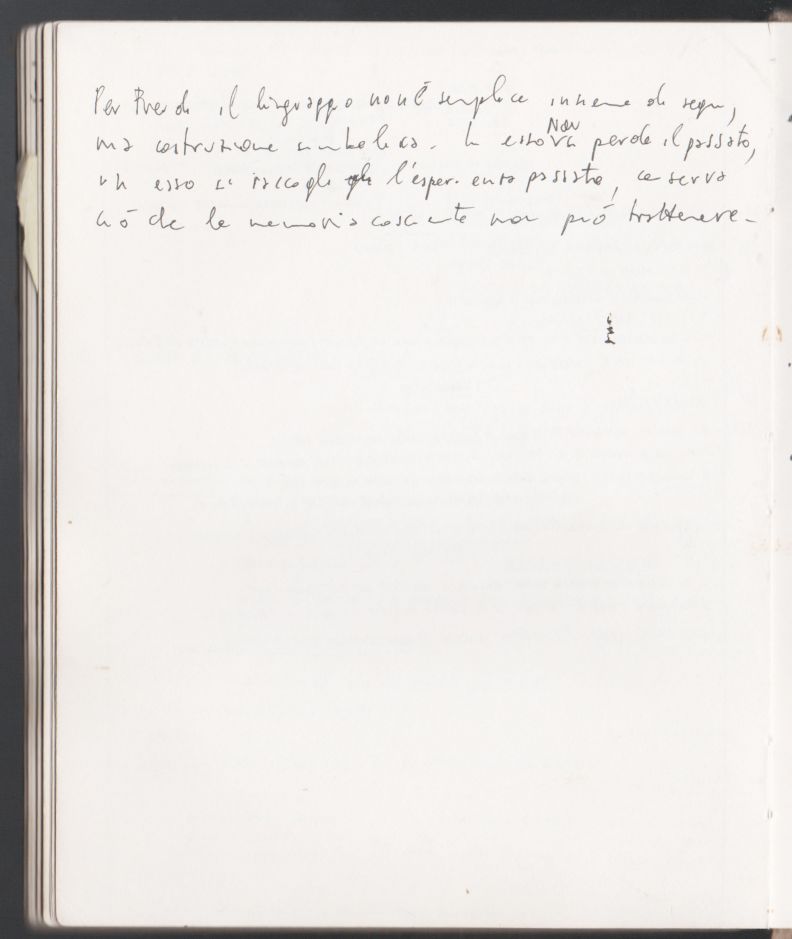 Per Freud il linguaggio non è semplice insieme di segni,
ma costruzione simbolica. In esso Non va perde il passato,
in esso si raccoglie l'esperienza passata, conserva
ciò che la memoria cosciente non può trattenere.